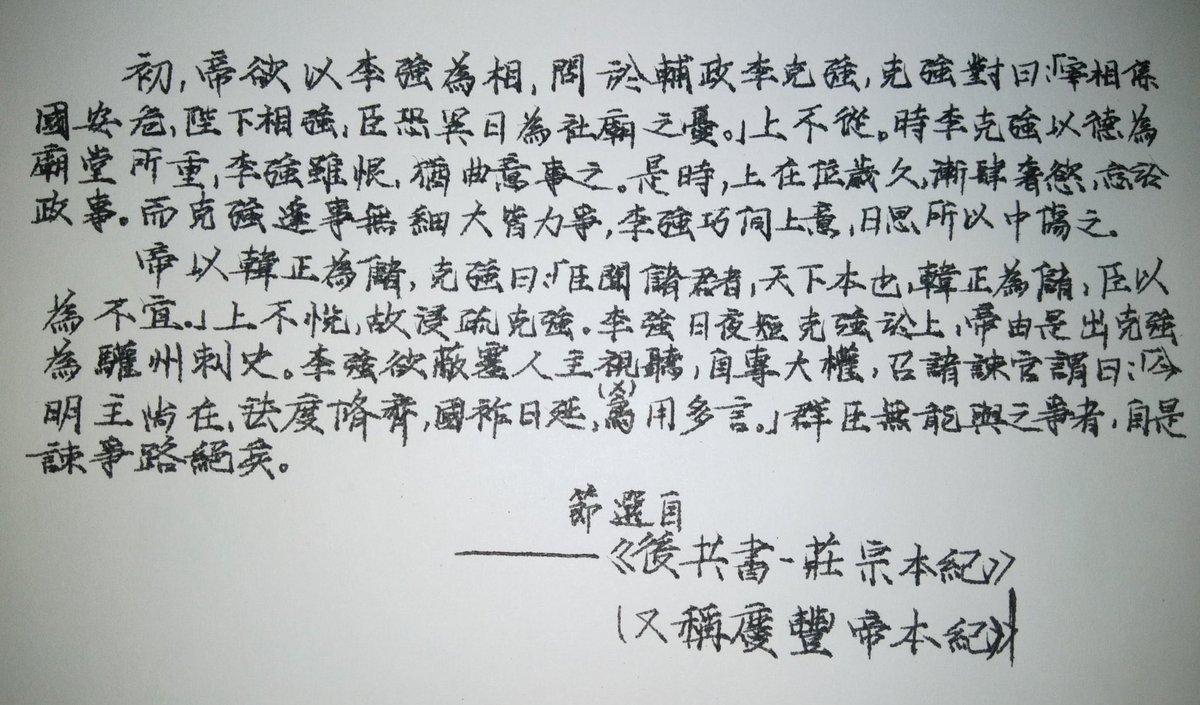 初,帝欲以李強為相,問於輔政李克強,克強對曰:「宰相係
國安危,陛下相強,臣恐異日為社廟之憂。」上不從。時李克強以德為
廟堂所重,李強雖恨,猶曲意事之。是時,上在位歲久,漸肆奢慾,怠於
政事。而克強逢事無細大皆力爭,李強巧伺上意,日思所以中傷之。
帝以韓正為儲,克強曰:「臣聞儲君者,天下本也,韓正為儲,臣以
為不宜。」上不悅,故浸疏克強。李強日夜短克強於上,帝由是出克強
為驩州刺史。李強欲蔽塞人主視聽,自專大權,召諸諫官謂曰:「今
明主尚在,法度脩齊,國祚日延,(烏)焉用多言。」群臣無能與之爭者,自是
諫爭路絕矣。
節選自
——《後共書-莊宗本紀》
(又稱慶豐帝本紀)